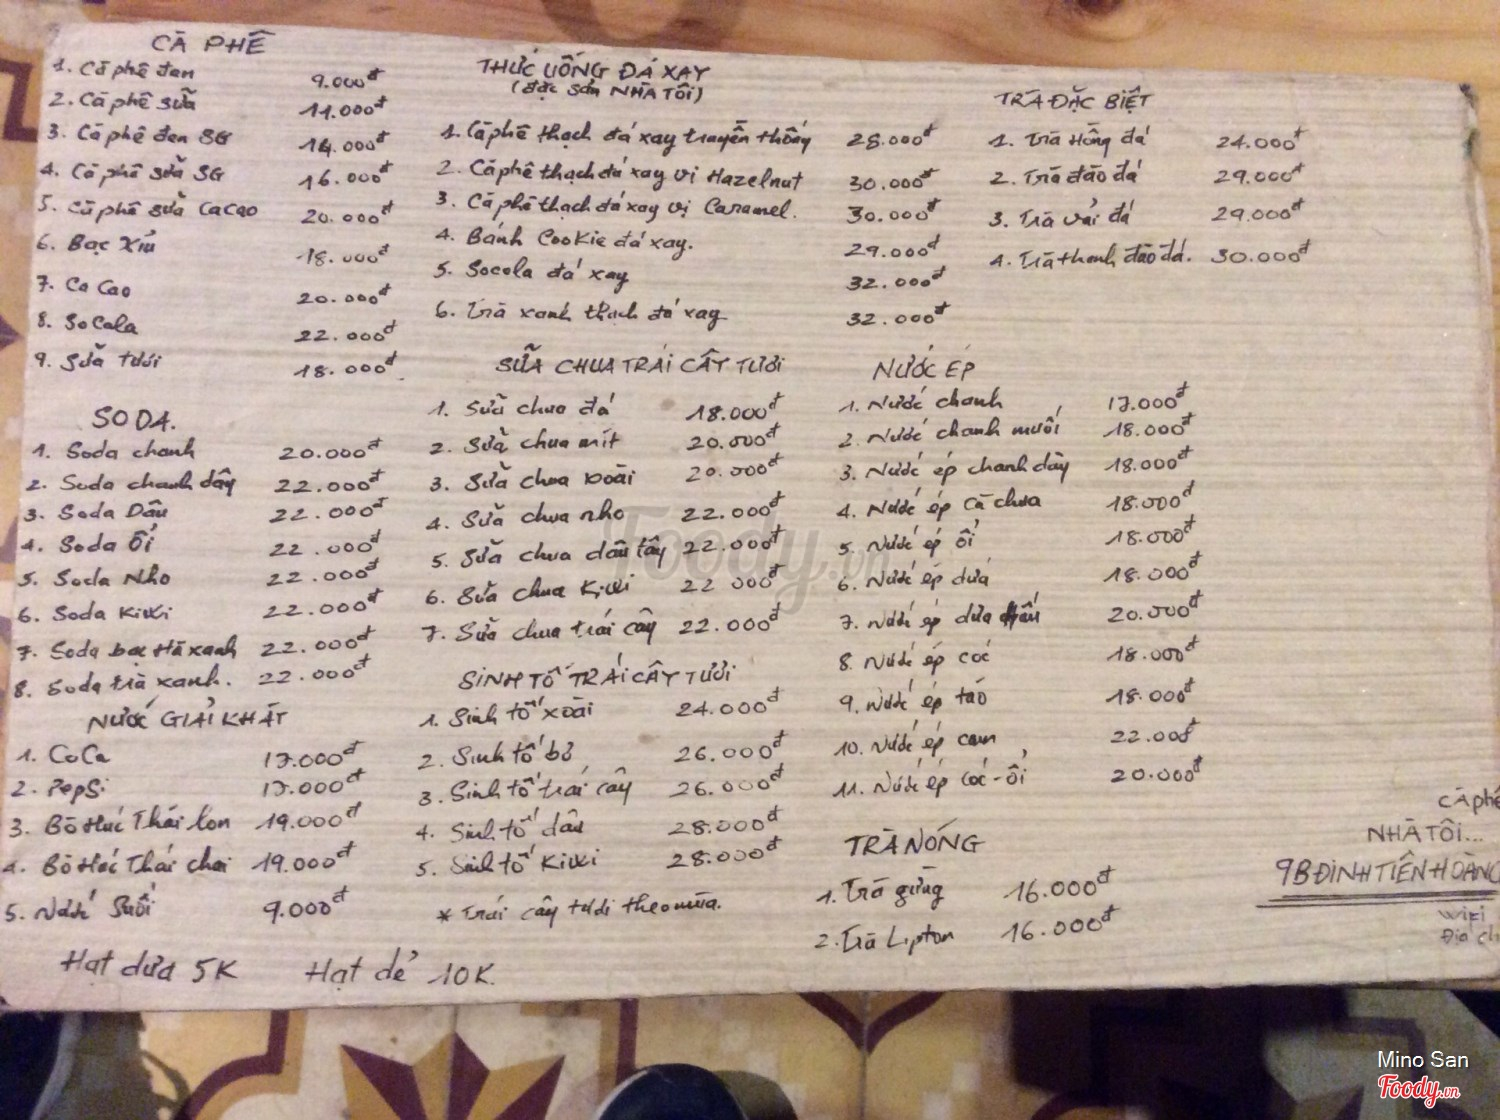 CÀ PHÊ
1. Cà phê đen 9.000đ
2. Cà phê sữa 11.000đ
3. Cà phê đen SG 14.000đ
4. Cà phê sữa SG 16.000đ
5. Cà phê sữa CaCao 20.000đ
6. Bạc Xỉu 18.000đ
7. Ca Cao 20.000đ
8. SoCola 22.000đ
9. Sữa tươi 18.000đ
SODA.
1. Soda chanh 20.000đ
2. Soda chanh dây 22.000đ
3. Soda Dâu 22.000đ
4. Soda Ổi 22.000đ
5. Soda Nho 22.000đ
6. Soda Kiwi 22.000đ
7. Soda bạc Hà xanh 22.000đ
8. Soda trà xanh. 22.000đ
NƯỚC GIẢI KHÁT
1. CoCa 17.000đ
2. PepSi 17.000đ
3. Bò Húc Thái lon 19.000đ
4. Bò Húc Thái chai 19.000đ
5. Nước Suối 9.000đ
Hạt dưa 5K Hạt dẻ 10K.
THỨC UỐNG ĐÁ XAY
(đặc sản NHÀ TÔI)
1. Cà phê thạch đá xay truyền thống 28.000đ
2. Cà phê thạch đá xay vị Hazelnut 30.000đ
3. Cà phê thạch đá xay vị Caramel. 30.000đ
4. Bánh Cookie đá xay. 29.000đ
5. Socola đá xay 32.000đ
6. Trà xanh thạch đá xay 32.000đ
SỮA CHUA TRÁI CÂY TƯƠI
1. Sữa chua đá 18.000đ
2. Sữa chua mít 20.000đ
3. Sữa chua xoài 20.000đ
4. Sữa chua nho 22.000đ
5. Sữa chua dâu tây 22.000đ
6. Sữa chua Kiwi 22 000đ
7. Sữa chua trái cây 22.000đ
SINH TỐ TRÁI CÂY TƯƠI
1. Sinh tố xoài 24.000đ
2. Sinh tố bơ 26.000đ
3. Sinh tố trái cây 26.000đ
4. Sinh tố dâu 28.000đ
5. Sinh tố Kiwi 28.000đ
* Trái cây tươi theo mùa.
TRÀ ĐẶC BIỆT
1. Trà Hồng đá 24.000đ
2. Trà đào đá 29.000đ
3. Trà vải đá 29.000đ
4. Trà thanh đào đá. 30.000đ
NƯỚC ÉP
1. Nước chanh 17.000đ
2. Nước chanh muối 18.000đ
3. Nước ép chanh dây 18.000đ
4. Nước ép cà chua 18.000đ
5. Nước ép ổi 18.000đ
6. Nước ép dứa 18.000đ
7. Nước ép dưa hấu 20.000đ
8. Nước ép cóc 18.000đ
9. Nước ép táo 18.000đ
10. Nước ép cam 22.000đ
11. Nước ép cóc-ổi 20.000đ
TRÀ NÓNG
1. Trà gừng 16.000đ
2. Trà Lipton 16.000đ
Cà phê
NHÀ TÔI...
9B ĐINH TIÊN HOÀNG
Wifi
Địa ch
Foody.vn
Mino San
Foody.vn